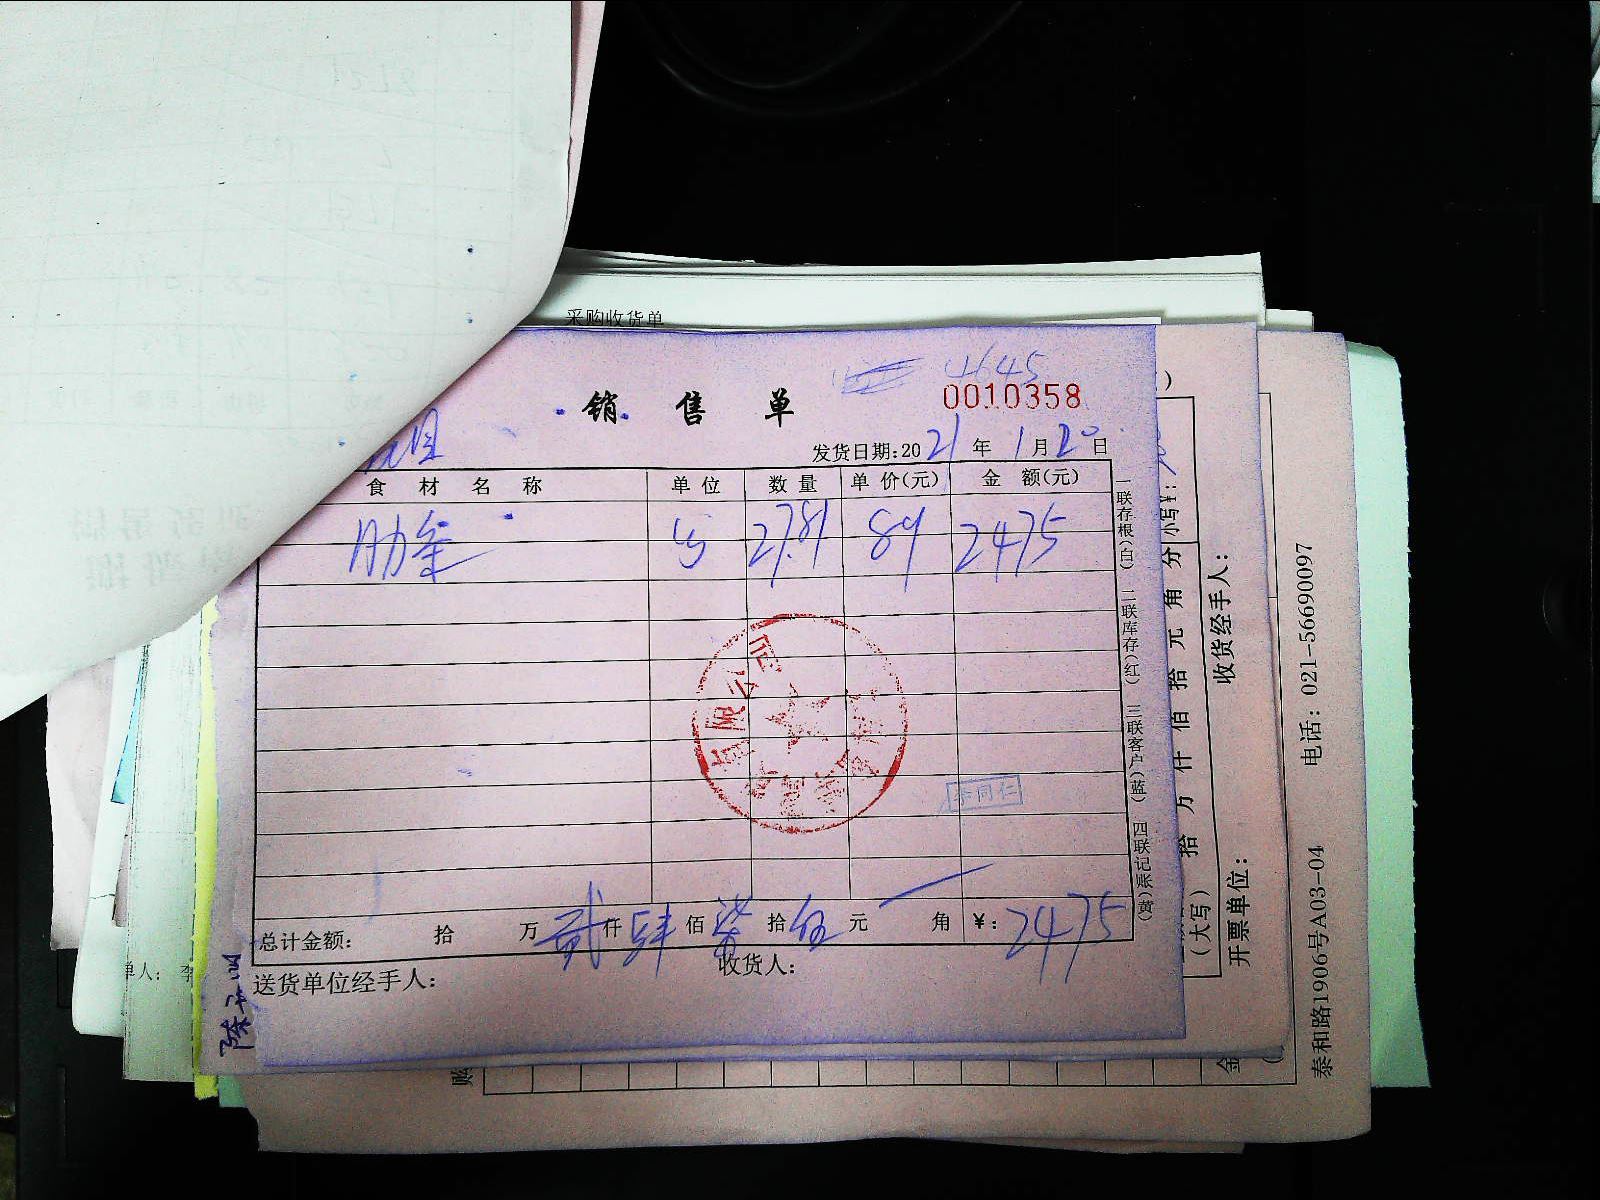 采购收货单
4645
销售单
0010358
发货日期:2021年1月20日
食材名称 单位 数量 单价(元) 金额(元)
27.81 89 2475
有限公司
李同仁
总计金额: 拾 万 贰仟 肆佰 柒拾 伍元 角 ¥: 2475
送货单位经手人: 收货人:
一联存根(白) 二联库存(红) 三联客户(蓝) 四联记账(黄)
单人: 李
小写¥:
拾万仟佰拾元角分
(大写)
收货经手人:
开票单位:
电话: 021-56690097
泰和路1906号A03-04
购
金